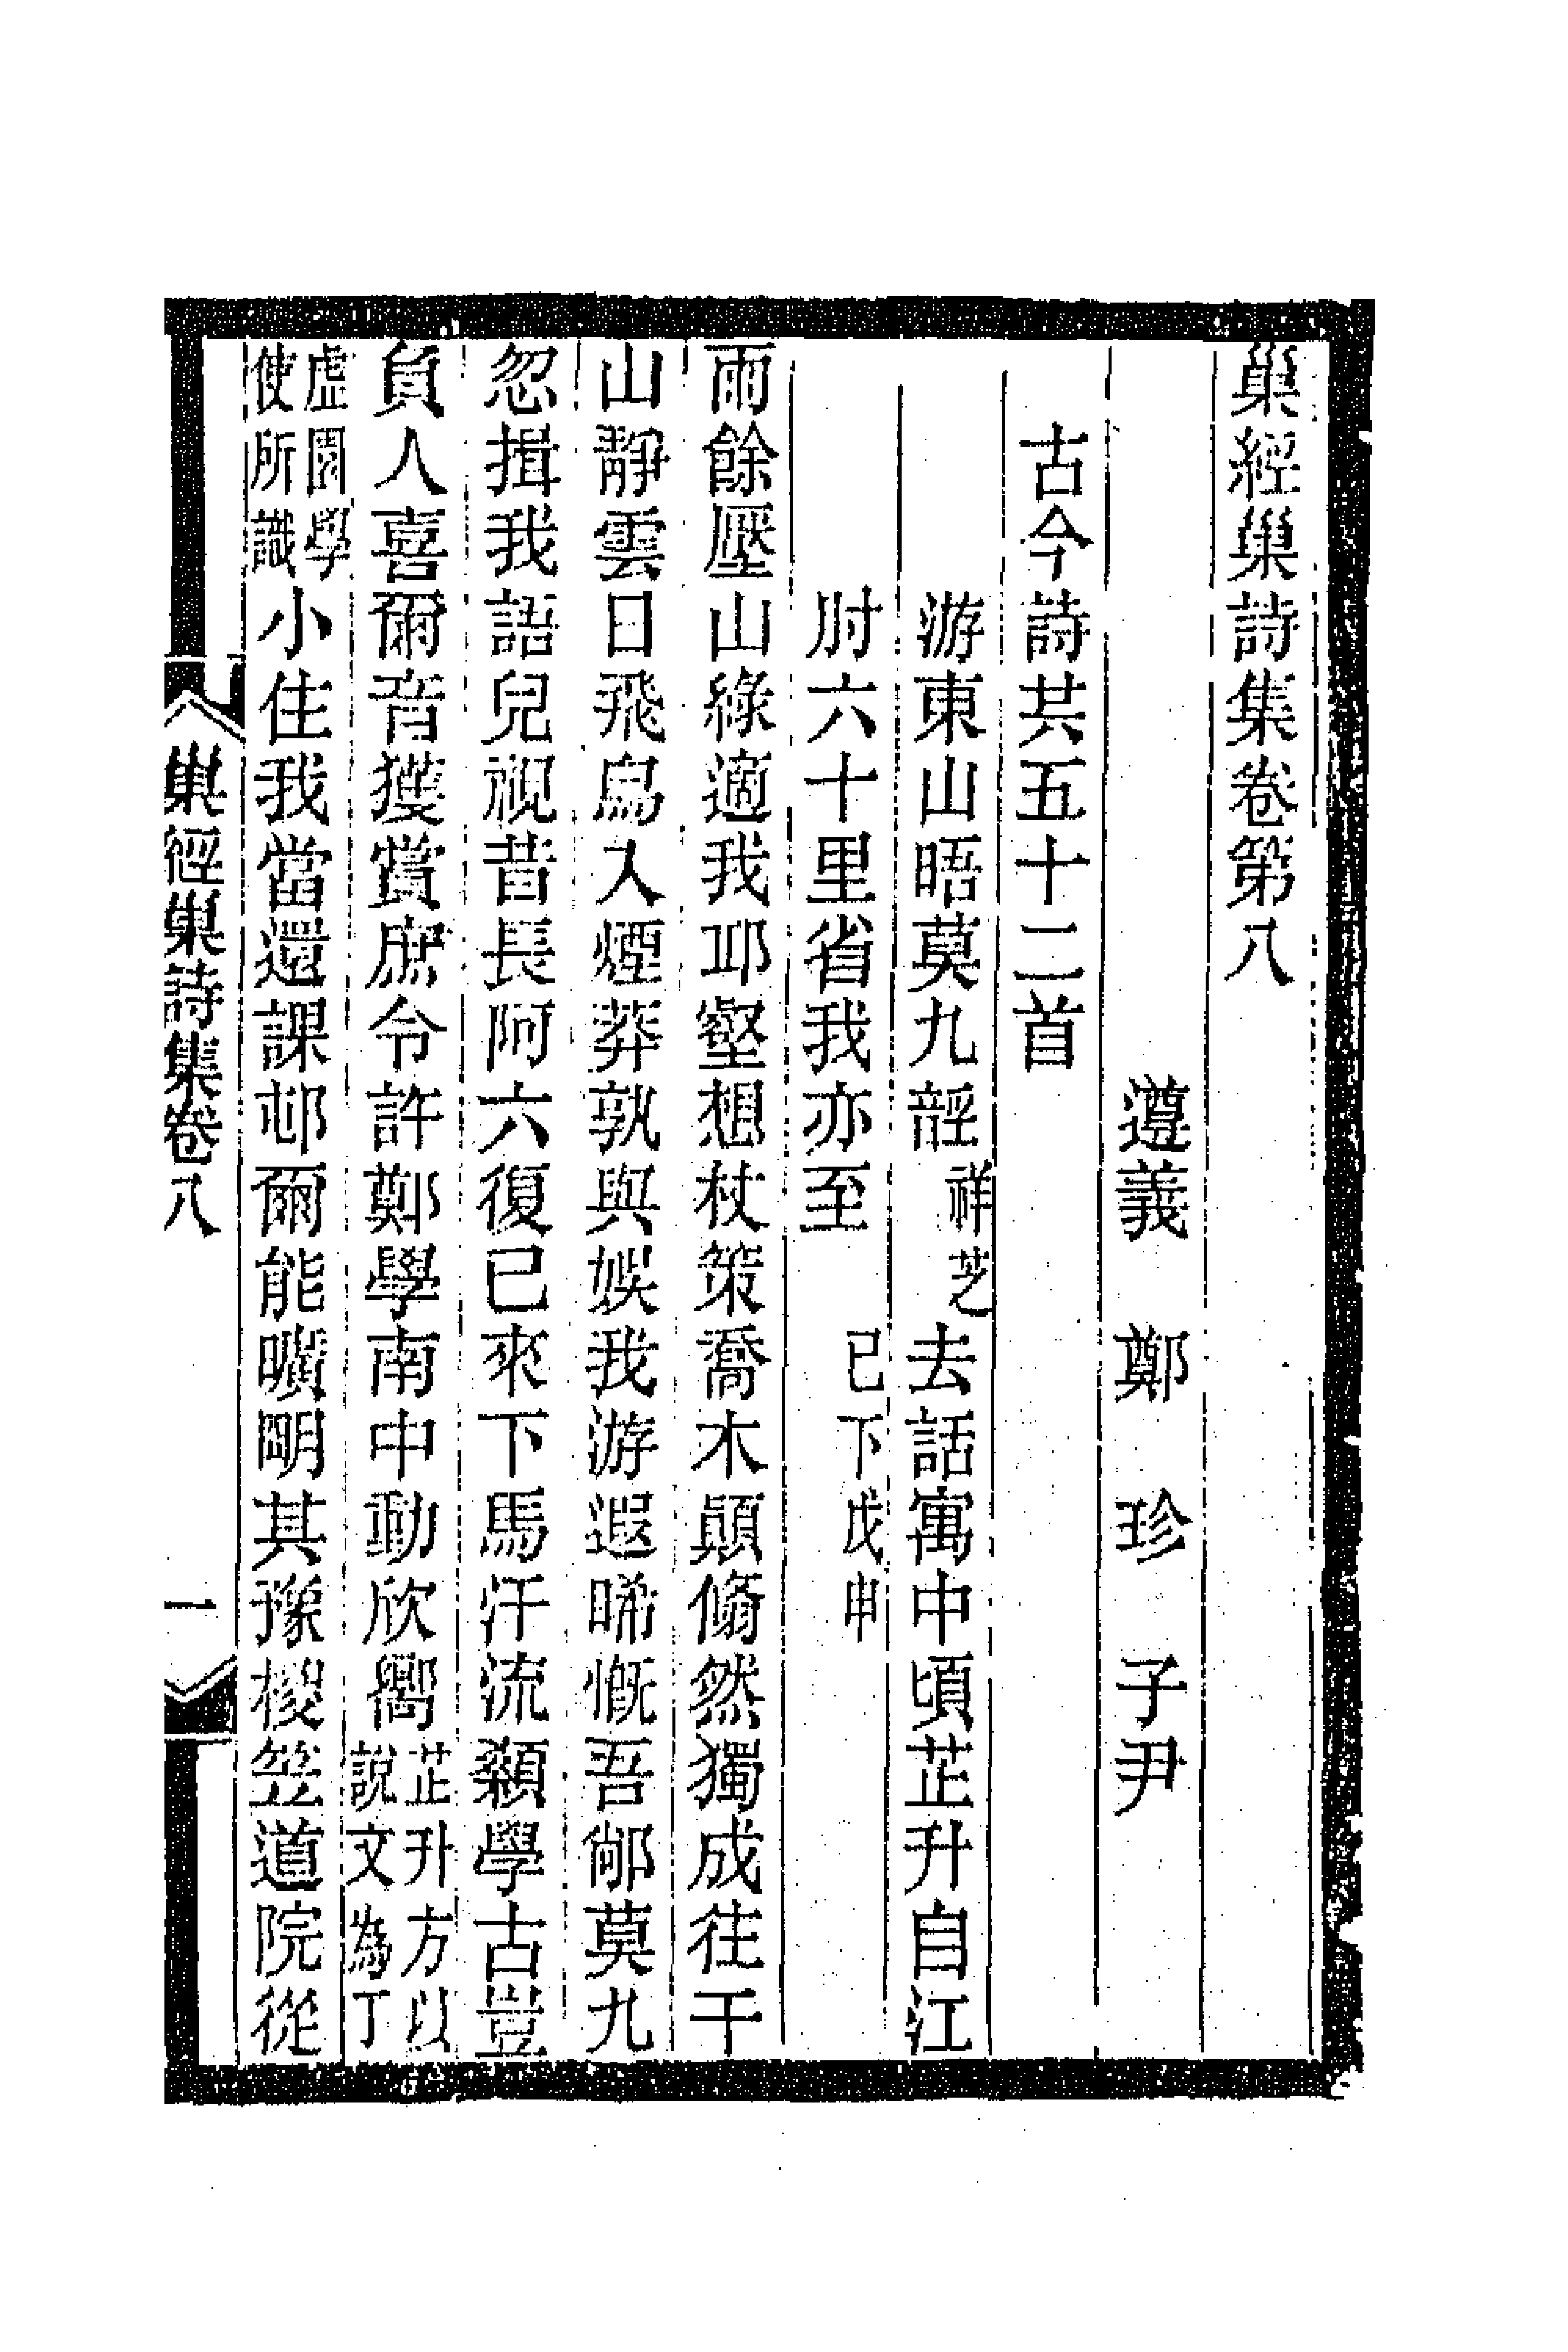 巢經巢詩集卷第八
遵義 鄭 珍 子尹
古今詩共五十二首
游東山晤莫九祥芝去話寓中頃芷升自江
肘六十里省我亦至 已下戊申
雨餘壓山綠適我邛壑想杖策喬木顚翛然獨成往干
山靜雲日飛鳥入煙莽孰與娛我游遐睎慨吾鄉莫九
忽揖我語兒視昔長阿六復已來下馬汗流顙學古豈
負人喜爾音獲賞庶令許鄭學南中動欣嚮芷升方以說文為丁
虛園學使所識小住我當還課邨爾能曠朙其豫椶笠道院從
巢經巢詩集卷八
一